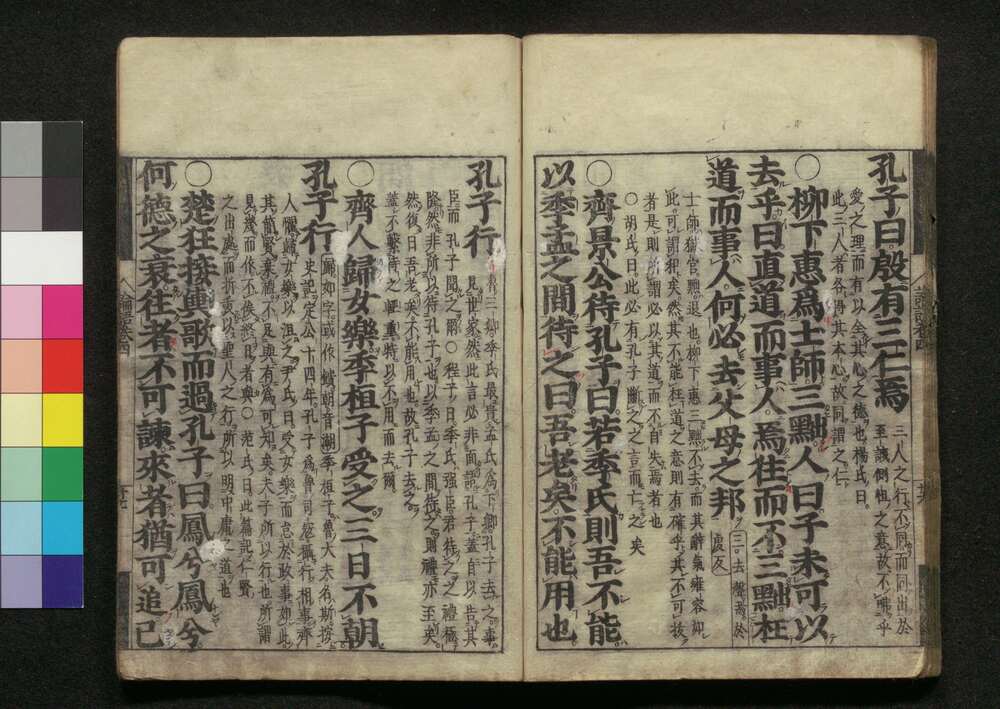 孔子曰殷有三仁焉
三人之行不同而同出於
至誠惻怛之意故不咈乎
愛之理而有以全其心之德也楊氏曰
此三人者各得其本心故同謂之仁
○柳下惠爲士師三黜人曰子未可以
去乎曰直道而事人焉往而不三黜枉
道而事人何必去父母之邦
三去聲焉於
虔反
士師獄官黜退也柳下惠三黜不去而其辭氣雍容如
此可謂和矣然其不能枉道之意則有確乎其不可拔
者是則所謂必以其道而不自失焉者也
○胡氏曰此必有孔子斷之之言而亡之矣
○齊景公待孔子曰若季氏則吾不能
以季孟之間待之曰吾老矣不能用也
孔子行
魯三卿季氏最貴孟氏爲下卿孔子去之事
見世家然此言必非面語孔子蓋自以告其
臣而孔子聞之爾○程子曰季氏强臣君待之之禮極
隆然非所以待孔子也以季孟之間待之則禮亦至矣
然復曰吾老矣不能用也故孔子去之
蓋不繫待之輕重特以不用而去爾
○齊人歸女樂季桓子受之三日不朝
孔子行
歸如字或作饋朝音潮季桓子魯大夫名斯按
史記定公十四年孔子爲魯司寇攝行相事齊
人懼歸女樂以沮之尹氏曰受女樂而怠於政事如此
其簡賢棄禮不足與有爲可知矣夫子所以行也所謂
見幾而作不俟終日者與○范氏曰此篇記仁賢
之出處而折衷以聖人之行所以明中庸之道也
○楚狂接輿歌而過孔子曰鳳兮鳳兮
何德之衰往者不可諫來者猶可追已
論語卷四